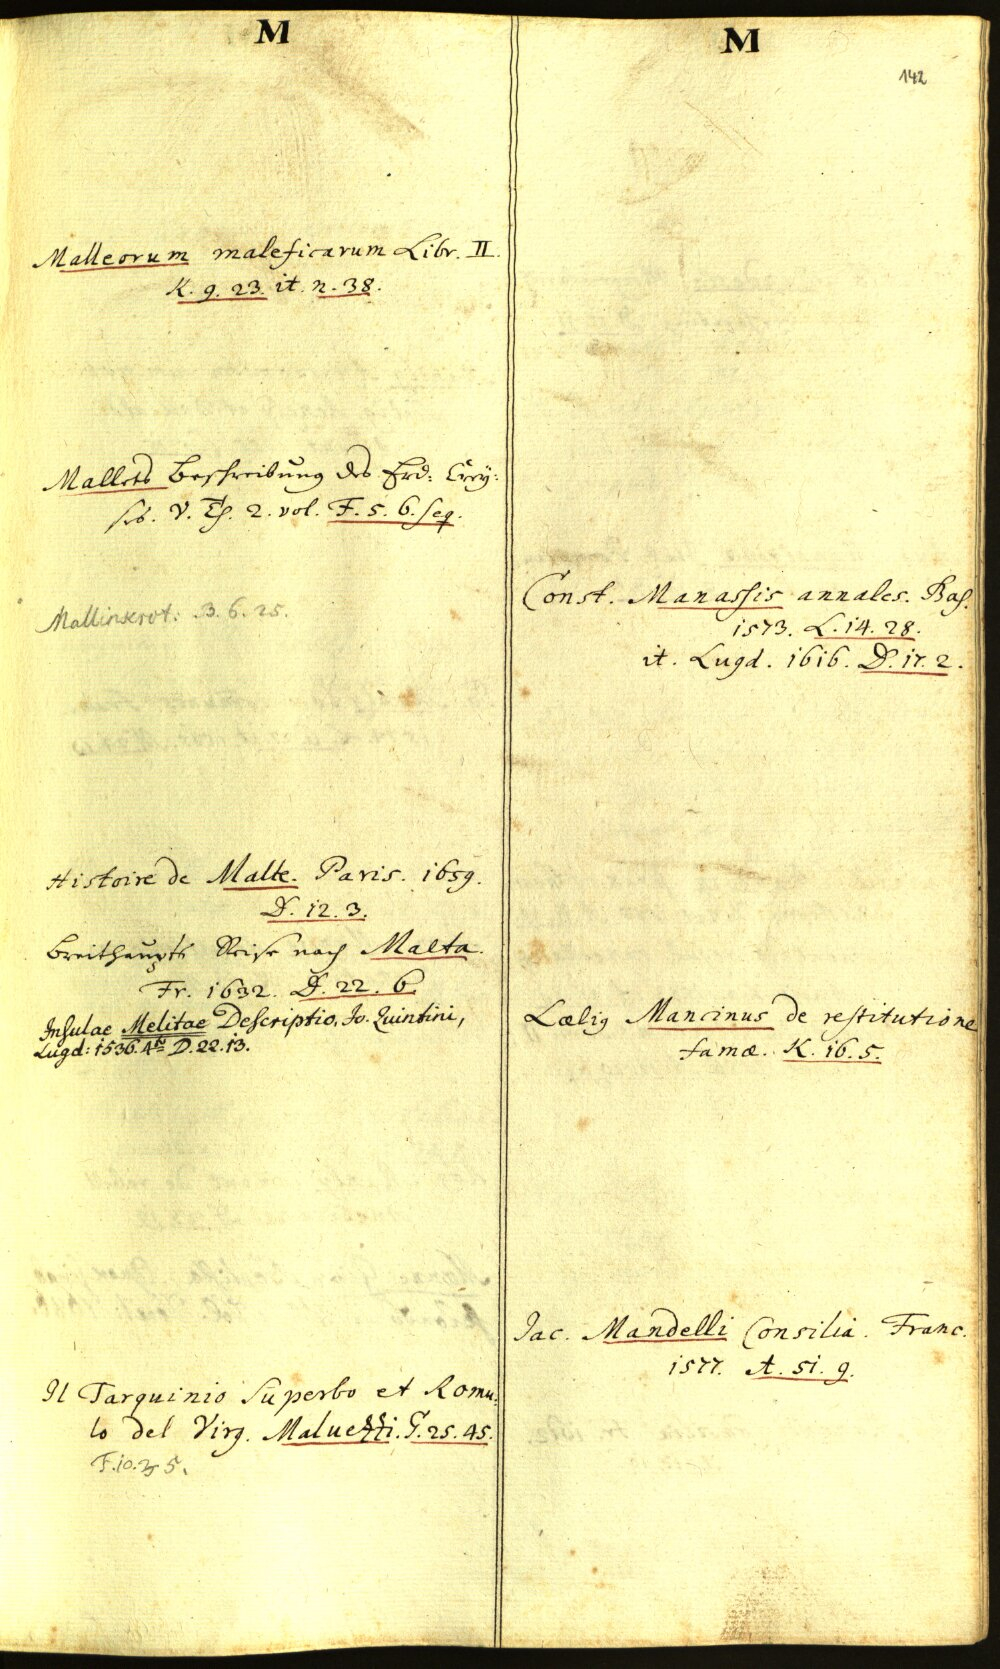 M
Malleorum maleficarum Libr. II.
K. 9. 23. it. n. 38.
Mallets Beschreibung des Erd: Crey:
ses. V. Th. 2. vol. F. 5. 6. seq.
Mallinkrot: 3. 6. 25.
Histoire de Malte. Paris. 1659.
D. 12. 3.
Breithaupts Reise nach Malta.
Fr. 1632. D. 22. 6.
Insulae Melitae Descriptio, Jo. Quintini,
Lugd: 1536. 4to D. 22. 13.
Il Tarquinio Superbo et Romu:
lo del Virg. Maluezzi. G. 25. 45.
F. 10. 5.
M
142
Const. Manassis annales. Bas.
1573. L. 14. 28.
it. Lugd. 1616. D. 17. 2.
Lælig Mancinus de restitutione
famæ. K. 16. 5.
Jac. Mandelli Consilia. Franc.
1577. A. 51. 9.